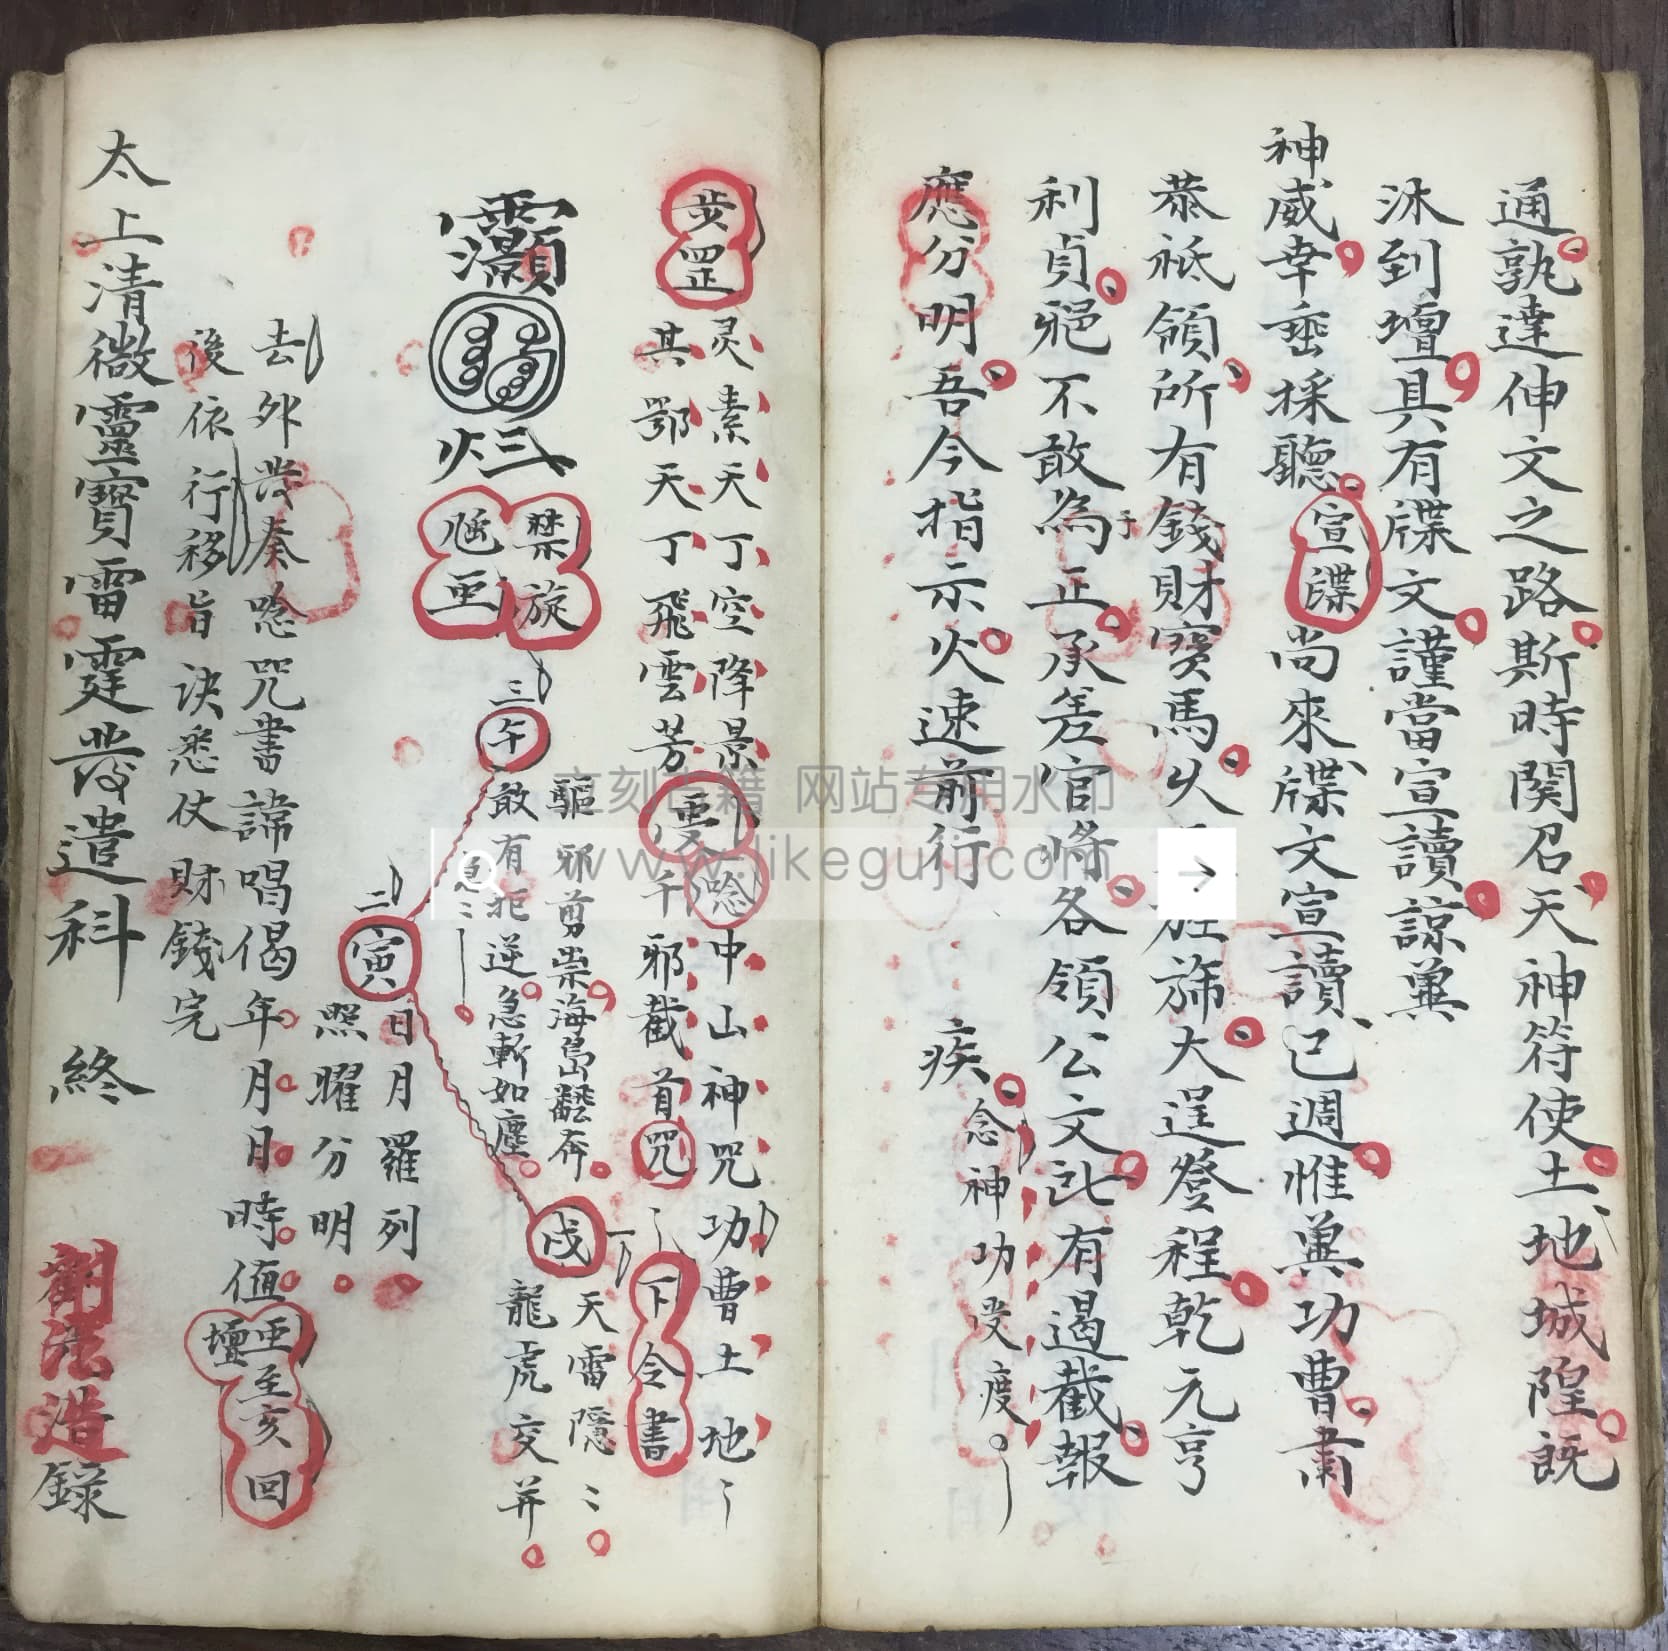 通孰達伸文之路斯時関召天神符使土地城隍既
沐到壇具有牒文謹當宣讀諒兼
神威幸垂採聽宣牒尚來牒文宣讀已週惟兼功曹肅
恭祗領所有錢財寶馬火旌旆大逞登程乾元亨
利貞邪不敢為正承差官將各領公文此有遏截報
應分明吾今指示火速前行
疾
念神功受度
步罡
灵素天丁空降景
其鄂天丁飛雲芳
唸中山神咒功曹土地
千邪截首咒
下令書
禁旋
三午
驅邪剪祟海島奔
敢有逆急斬如塵
急
戌一
天雷隱
龍虎交并
二寅
日月羅列
照曜分明
去外发奏唸咒書諱唱偈年月日時值
至亥回
壇
後依行移旨訣悉仗財錢完
太上清微靈寶雷霆发遣科 終
法造錄
立刻古籍 网站专用水印
www.likeguji.com